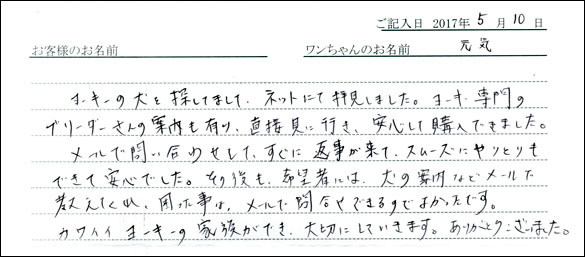 ご記入日 2017年 5 月 10 日
お客様のお名前 ワンちゃんのお名前 元気
ヨーキーの犬を探してまして、ネットにて拝見しました。ヨーキー専門の
ブリーダーさんの案内も有り、直接見に行き、安心して購入できました。
メールで問い合わせして、すぐに返事が来て、スムーズにやりとりも
できて安心でした。その後も、希望者には、犬の案内などメールで
教えてくれ、困った事は、メールで問合やできるのでよかったです。
カワイイ ヨーキーの家族ができ、大切にしていきます。ありがとうございました。